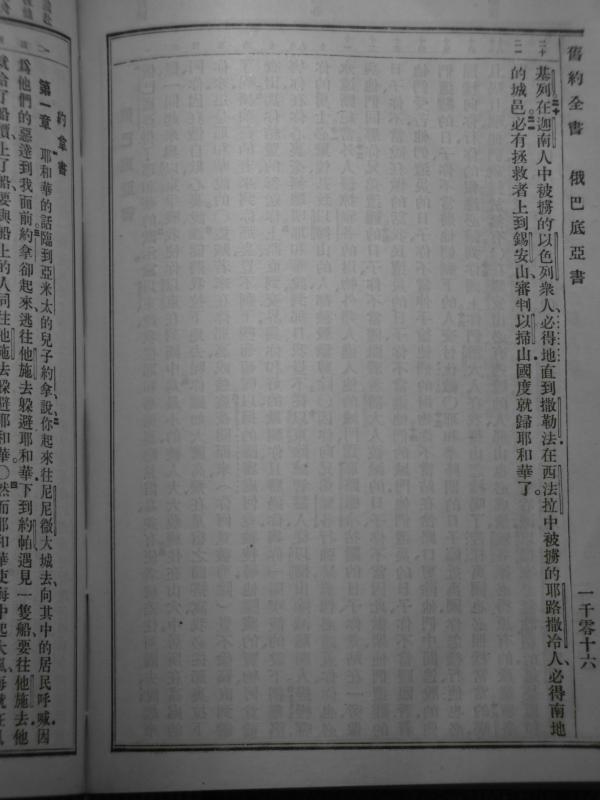 舊約全書 俄巴底亞書 一千零十六
二十
基列在迦南人中被擄的以色列衆人、必得地直到撒勒法在西法拉中被擄的耶路撒冷人、必得南地
二一
的城邑。必有拯救者上到錫安山、審判以掃山國度就歸耶和華了。
約拿書
第一章 耶和華的話臨到亞米太的兒子約拿說、你起來往尼尼微大城去、向其中的居民呼喊因
爲他們的惡達到我面前。約拿卻起來逃往他施去躲避耶和華下到約帕遇見一隻船、要往他施去他
就給了船價、上了船、要與船上的人同往他施去躲避耶和華。〇然而耶和華使海中起大風海就狂風